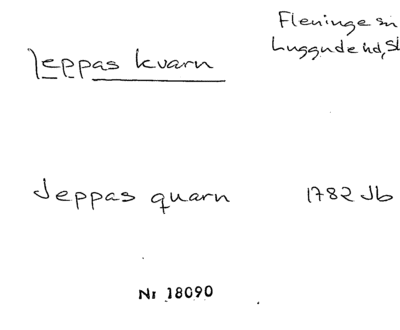 Jeppas kvarn
Fleninge sn
Luggude hd, Sk
Jeppas quarn
1782 Jb
Nr 18090